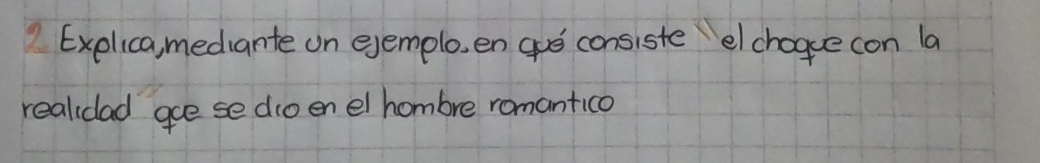 2. Explica, mediante un ejemplo, en qué consiste "el choque con la
realidad" que se dio en el hombre romantico